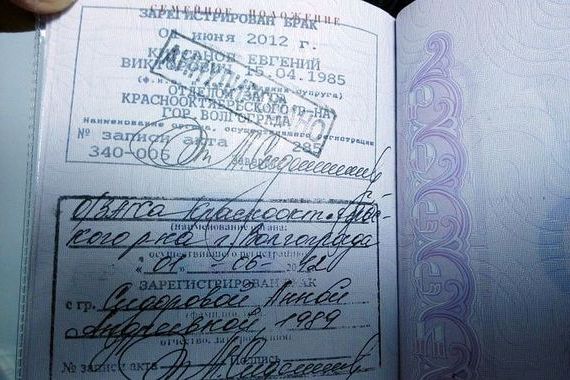 СЕМЕЙНОЕ ПОЛОЖЕНИЕ
ЗАРЕГИСТРИРОВАН БРАК
01 июня 2012 г.
ЕВГЕНИЙ
15.04.1985
ОТДЕЛОМ
КРАСНООКТЯБРЬСКОГО Р-НА
ГОР. ВОЛГОГРАДА
Наименование органа, осуществившего регистрации
№ записи акта 285
340-006 Заверено
О/ЗАГСа Краснооктябрь-
кого р-на г. Волгограда
(наименование органа,
осуществившего регистрацию)
« 01 » 06 2012
ЗАРЕГИСТРИРОВАН БРАК
с гр. Сидоровой Анной
Андреевной, 1989
отчество, дата рождения
№ записи акта Подпись